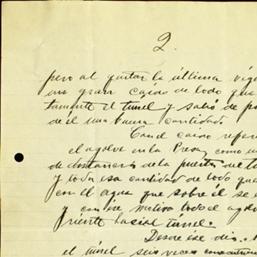 2.
pero al quitar la última vig
un gran caido de lodo que
tamente el tunel y salió de p
de él una buena cantidad
Con el caido refer
el agolve en la Presa, como u
de distancia de la puerta del t
y toda esa cantidad de lodo que
con el agua que sobre él se
y con ese motivo todo el ago
frente hasta el tunel.
Desde ese dia
el túnel seis veces